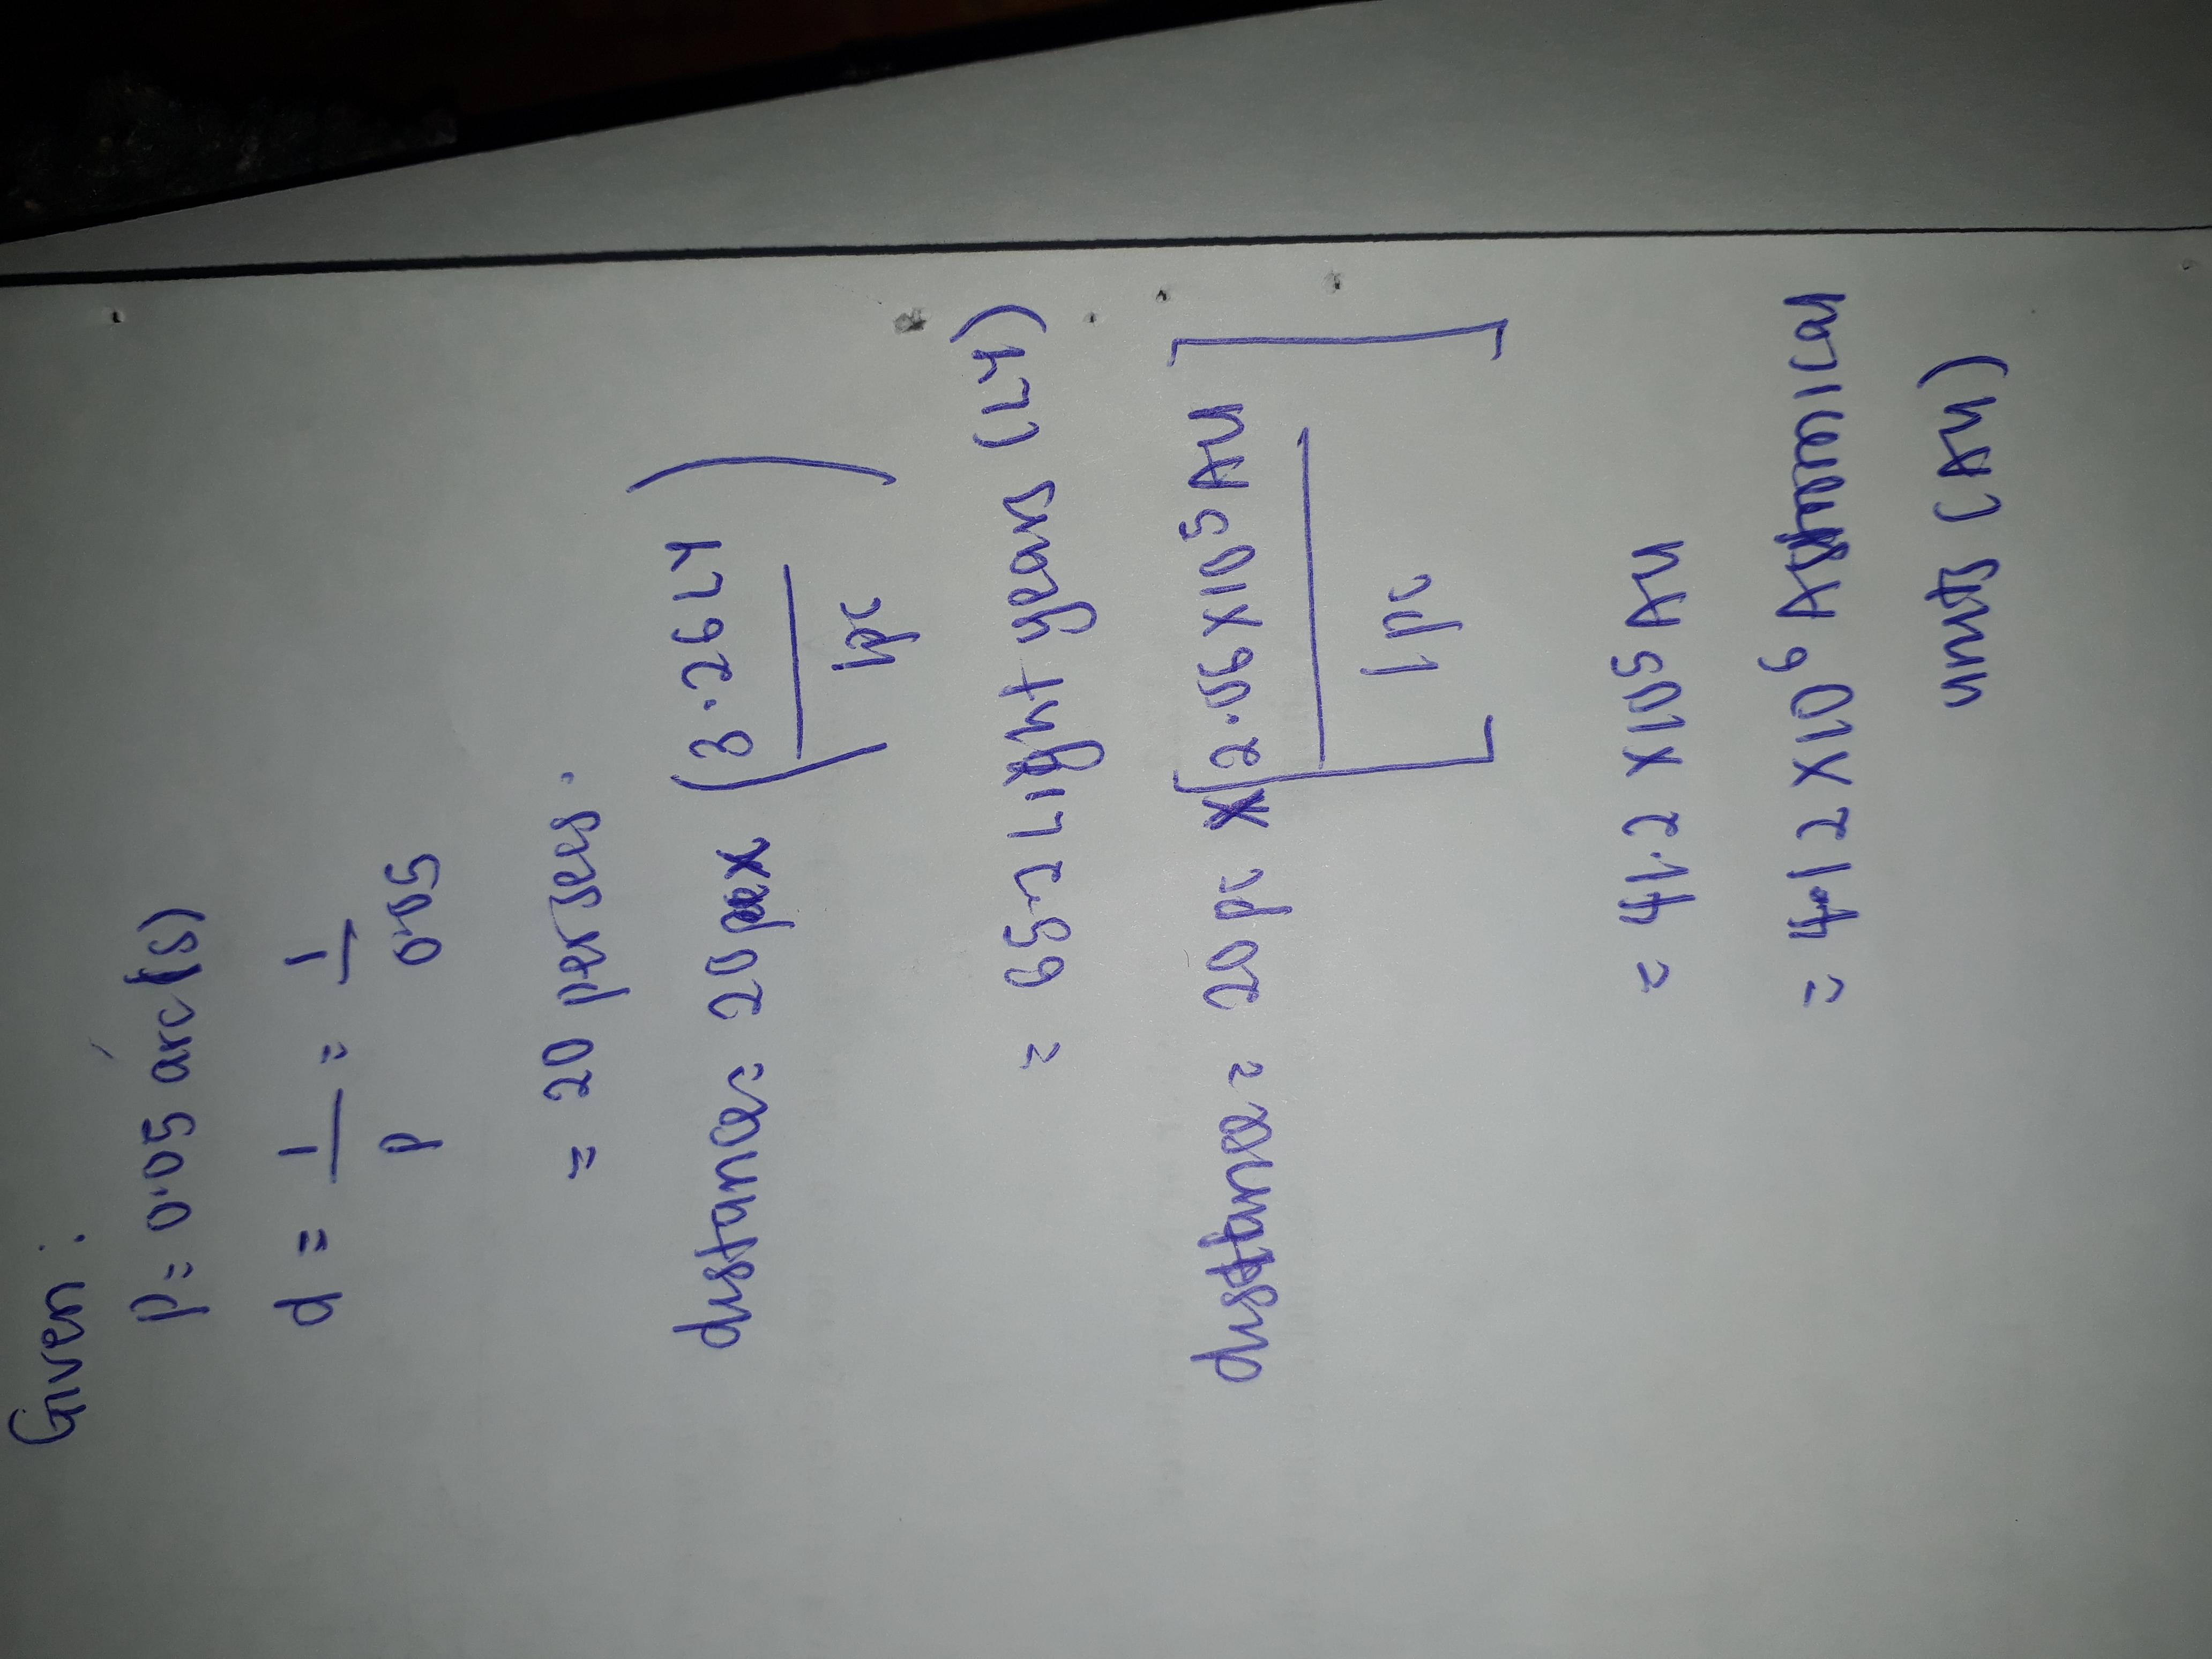 Given:
p = 0.05 arc(s)
d = 1/p = 1/0.05
= 20 parsecs.
distance = 20 pc x (3.26 LY / 1pc)
= 65.2 Light years (LY)
distance = 20 pc x [2.06 x 10^5 AU / 1 pc]
= 41.2 x 10^5 AU
= 4.12 x 10^6
units (AU)